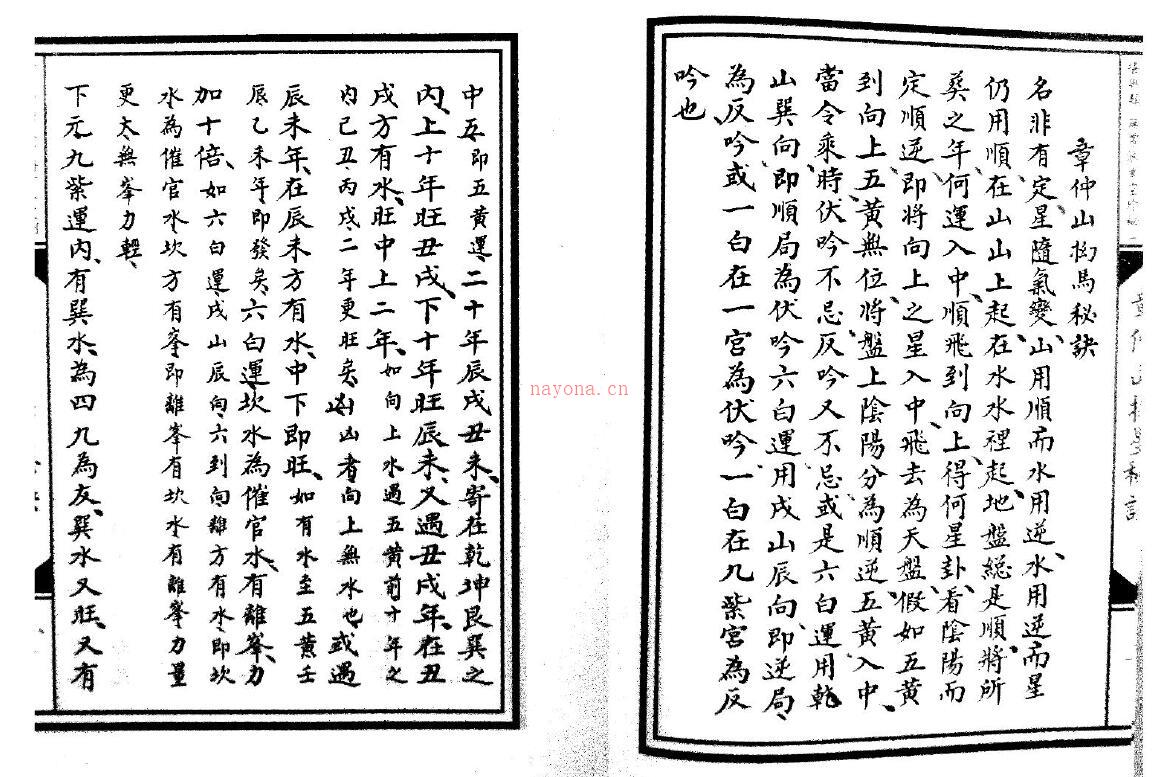 章仲山挨星秘訣
名非有定星隨氣變山用順而水用逆水用逆而星
仍用順在山山上起在水水裡起地盤總是順將所
葵之年何運入中順飛到向上得何星卦看陰陽而
定順逆即將向上之星入中飛去為天盤假如五黃
到向上五黃無位將盤上陰陽分為順逆五黃入中
當令乘時伏吟不忌反吟又不忌或是六白運用乾
山巽向即順局為伏吟六白運用戌山辰向即逆局
為反吟或一白在一宮為伏吟一白在九紫宮為反
吟也
中五即五黃運二十年辰戌丑未寄在乾坤艮巽之
內上十年旺丑戌下十年旺辰未又遇丑戌年在丑
戌方有水旺中上二年如向上水遇五黃前十年之
內己丑丙戌二年更旺矣凶凶者向上無水也或遇
辰未年在辰未方有水中下即旺如有水至五黃壬
辰乙未年即發矣六白運坎水為催官水有離峯力
加十倍如六白運戌山辰向六到向離方有水即坎
水為催官水坎方有峯即離峯有坎水有離峯力量
更大無峯力輕
下元九紫運內有巽水為四九為友巽水又旺又有
nayona.cn